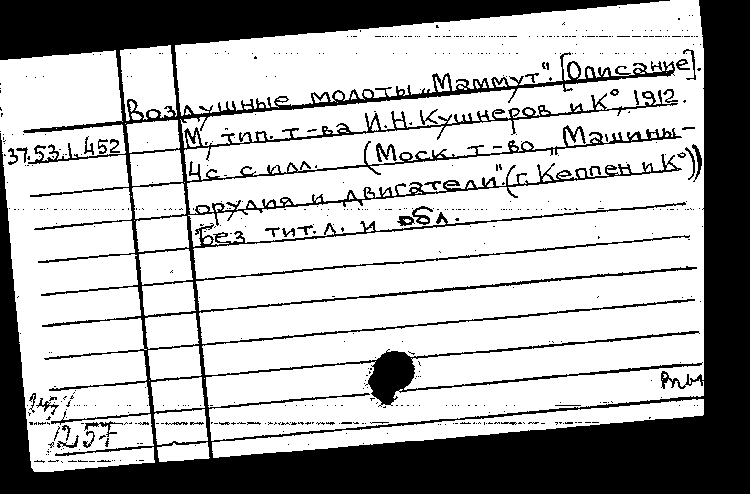 Воздушные молоты „Маммут". [Описание].
М., тип. т-ва И.Н. Кушнеров и К°, 1912.
37.53.1.452
4с. с илл. (Моск. т-во „Машины-
орудия и двигатели". (г. Кеппен и К°))
Без тит. л. и обл.
257